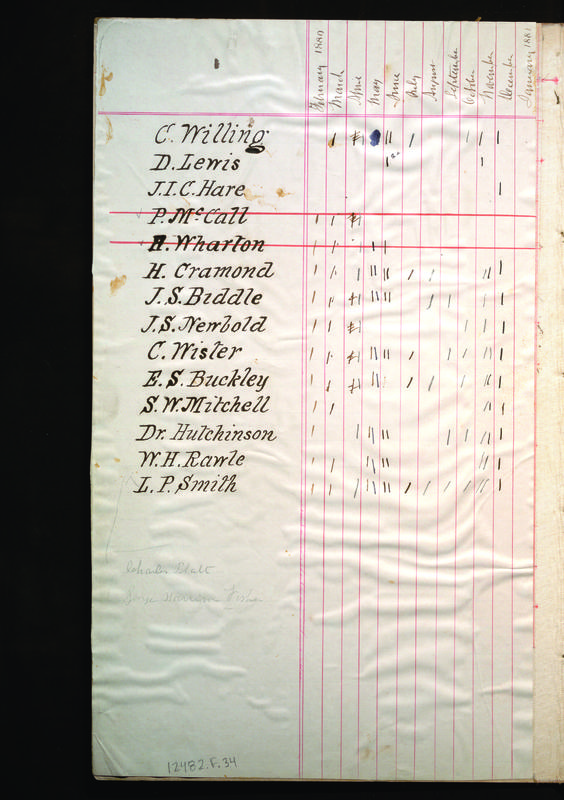 February 1880
March
May
June
July
August
September
October
November
December
January 1881
C. Willing
D. Lewis
J.I.C. Hare
P. McCall
Wharton
H. Cramond
J.S. Biddle
J.S. Newbold
C. Wister
E.S. Buckley
S.W. Mitchell
Dr. Hutchinson
W.H. Rawle
L.P. Smith
Charles
Fisher
12482.F.34